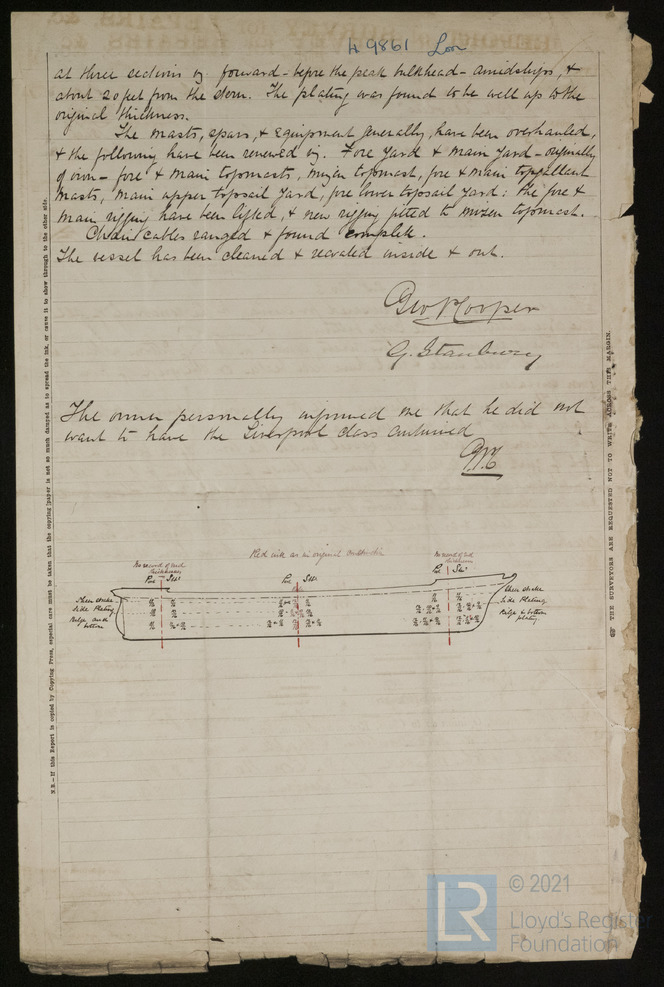 49861 Lon
at three sections vz. forward - before the peak bulkhead - amidships, &
about 20 feet from the stern. The plating was found to be well up to the
original thickness.
The masts, spars, & equipment generally, have been overhauled,
& the following have been renewed vz. Fore yard & main yard - originally
of iron - fore & main topmasts, mizen topmast, fore & main topgallant
masts, main upper topsail yard, fore lower topsail yard: the fore &
main rigging have been lifted, & new rigging fitted to mizen topmast.
Chain cables ranged & found complete.
The vessel has been cleaned & recoated inside & out.
Geo Cooper
G. Stanbury
The owner personally informed me that he did not
want to have the Liverpool class continued
Red ink as in original
No record of red thickness
No record of red thickness
Port Star
Port Star
Port Star
Sheer strake
Side Plating
Bilge and bottom
Sheer strake
Side Plating
Bilge & bottom plating
N.B.—If this Report is copied by Copying Press, especial care must be taken that the copying paper is not so much damped as to spread the ink, or cause it to show through to the other side.
THE SURVEYORS ARE REQUESTED NOT TO WRITE ACROSS THIS MARGIN.
LR
© 2021
Lloyd's Register
Foundation